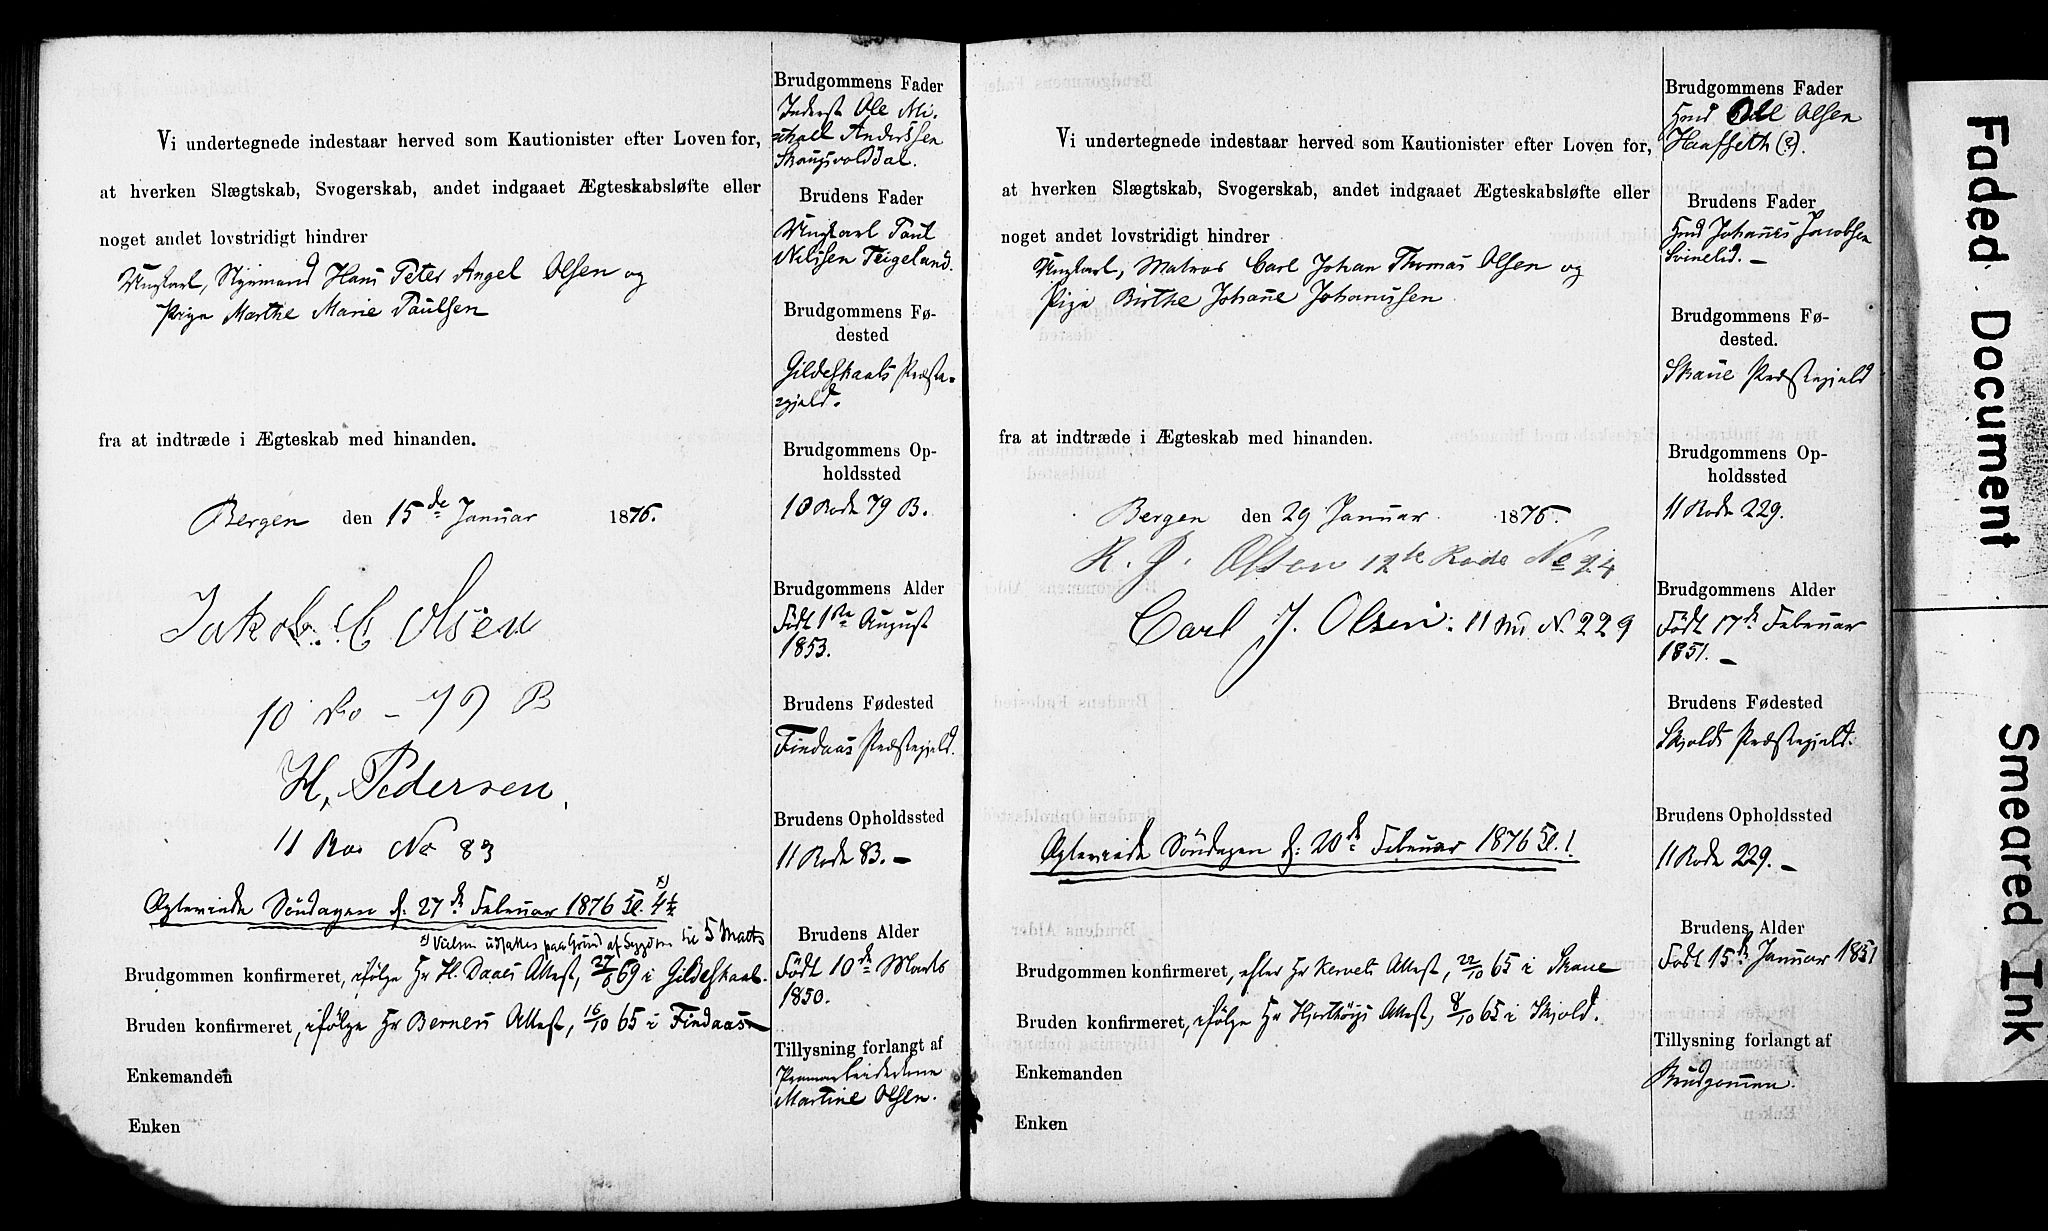 Vi undertegnede indestaar herved som Kautionister efter Loven for,
at hverken Slægtskab, Svogerskab, andet indgaaet Ægteskabsløfte eller
noget andet lovstridigt hindrer
Ungkarl, Styrmand Hans Peter Angel Olsen og
Pige Marthe Marie Paulsen
fra at indtræde i Ægteskab med hinanden.
Bergen den 15de Januar 1876.
Jakob. C Olsen
10 Ro - 79 B
H. Pedersen,
11 Ro No 83
Søndagen d: 27de Februar 1876 Kl. 4½ x)
x) Vielsen udsattes paa Grund af Sygdom til 5 Marts
Brudgommen konfirmeret, ifølge Hr H. Daaes Attest, 69 i Gildeskaal.
Bruden konfirmeret, ifølge Hr Berners Attest, 15/10 65 i Findaas
Enkemanden
Enken
Brudgommens Fader
Inderst Ole Mi-
chael Anderssen
Brudens Fader
Ungkarl Paul
Nilssen Teigeland.
Brudgommens Fø-
dested
Gildeskaals Præste-
gjeld.
Brudgommens Op-
holdssted
10 Rode 79 B.
Brudgommens Alder
Født 1ste August
1853.
Brudens Fødested
Findaas Præstegjeld.
Brudens Opholdssted
11 Rode 83. –
Brudens Alder
Født 10de Marts
1850.
Tillysning forlangt af
Martine Olsen.
Vi undertegnede indestaar herved som Kautionister efter Loven for,
at hverken Slægtskab, Svogerskab, andet indgaaet Ægteskabsløfte eller
noget andet lovstridigt hindrer
Ungkarl, Matros Carl Johan Thomas Olsen og
Pige Birthe Johanne Johannessen
fra at indtræde i Ægteskab med hinanden.
Bergen den 29 Januar 1876.
R. J. Olsen 12te Rode No 24
Carl J. Olsen: 11 Rd. N. 229
Søndagen d: 20de Februar 1876 Kl. 1.
Brudgommen konfirmeret, efter Hr Attest, 22/10 65 i Skaue
Bruden konfirmeret, ifølge Hr Attest, 8/10 65 i Skjold.
Enkemanden
Enken
Brudgommens Fader
Hmd Ole Olsen
(?).
Brudens Fader
Hmd Johannes Jacobsen
Svinelid. –
Brudgommens Fø-
dested.
Skaue Præstegjeld
Brudgommens Op-
holdssted
11 Rode 229.
Brudgommens Alder
Født 17de Februar
1851. –
Brudens Fødested
Skjolds Præstegjeld.
Brudens Opholdssted
11 Rode 229. –
Brudens Alder
Født 15de Januar 1851
Tillysning forlangt af
Brudgommen.
Faded Document
Smeared Ink